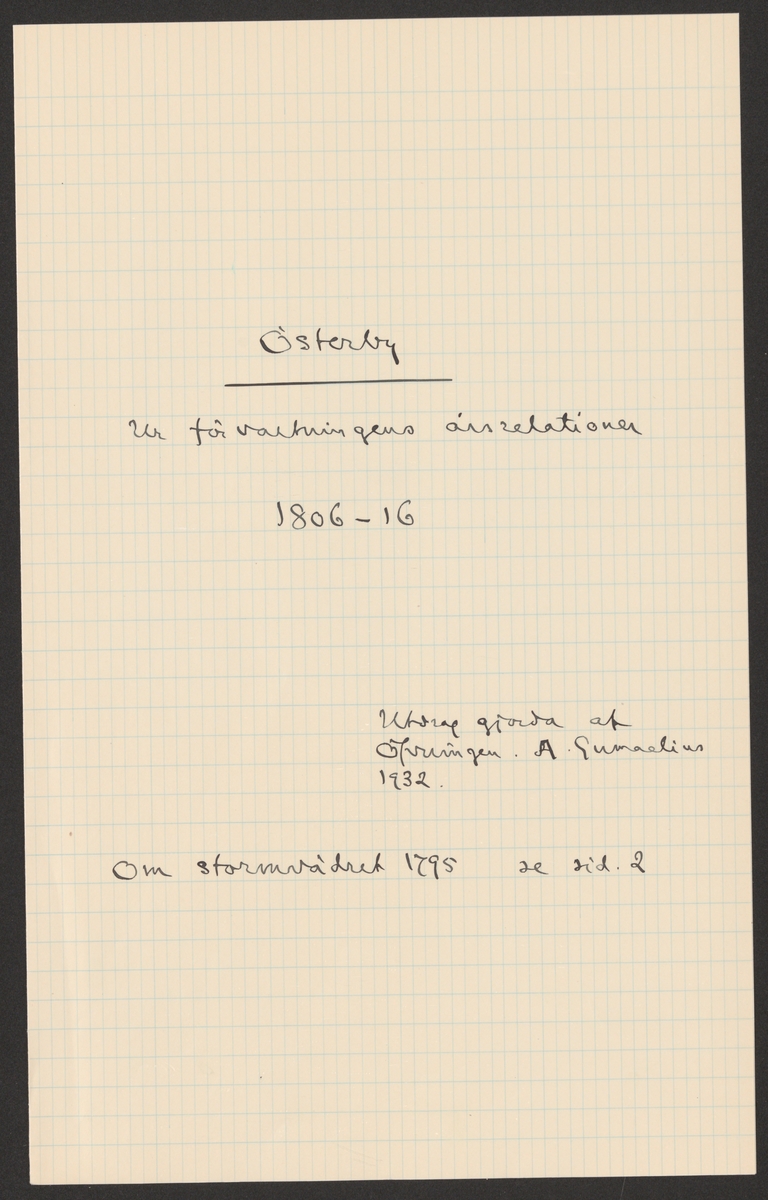 Österby
Ur förvaltningens årsrelationer
1806-16
Utdrag gjorda af
Öfvering. A. Gumaelius
1932.
Om stormvädret 1795 se sid. 2